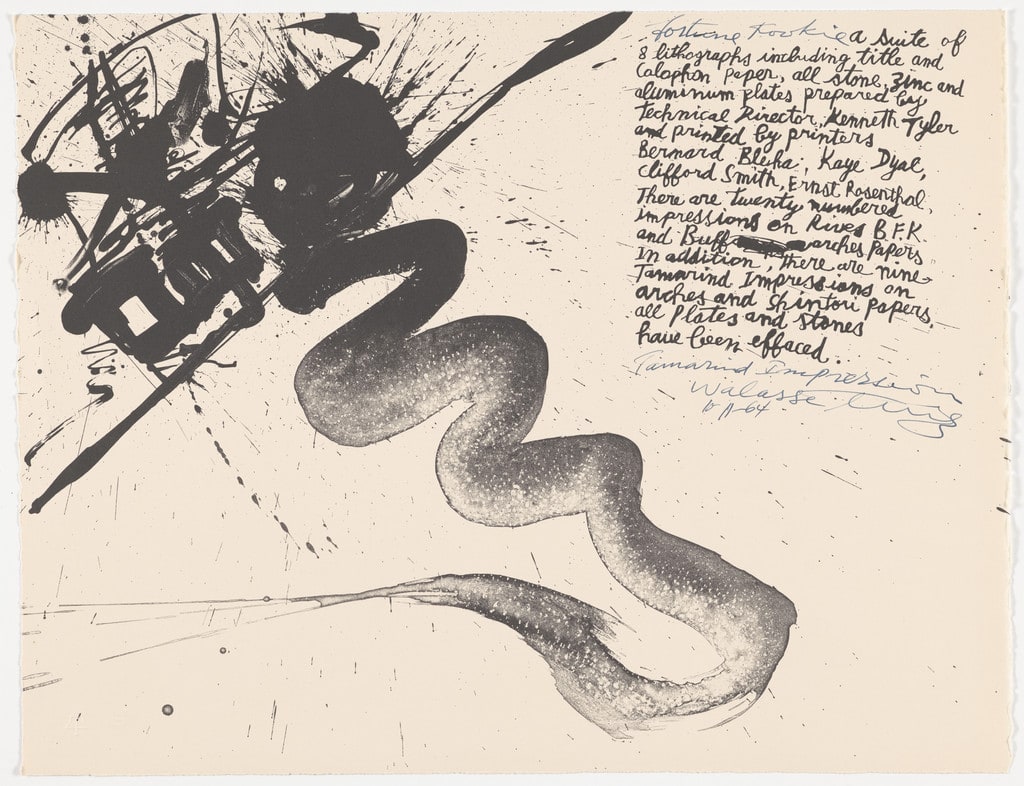 fortune Kookie a suite of
8 lithographs including title and
Colophon Paper, all stone, Zinc and
aluminum plates prepared by
Technical Director, Kenneth Tyler
and printed by printers
Bernard Bleha; Kaye Dyal,
Clifford Smith, Ernst Rosenthal.
There are twenty numbered
impressions on Rives B.F.K.
and Buff arches Papers
In addition, There are nine-
Tamarind Impressions on
arches and Shintori papers,
all Plates and stones
have been effaced.
Tamarind Impression
Walasse Ting
64